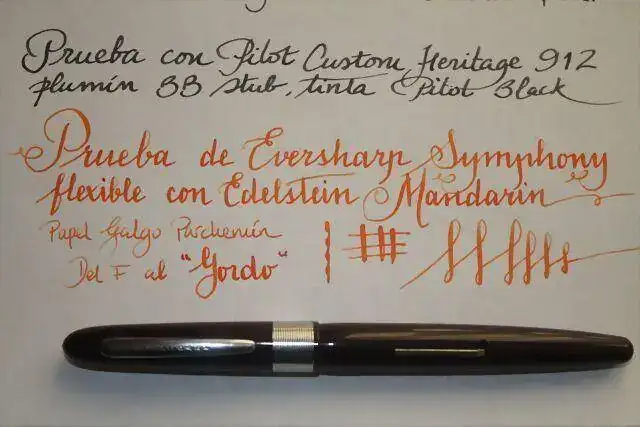 Prueba con Pilot Custom Heritage 912
plumín BB stub, tinta Pilot Black
Prueba de Eversharp Symphony
flexible con Edelstein Mandarin
Papel Galgo Parchemín
Del F al "Gordo"